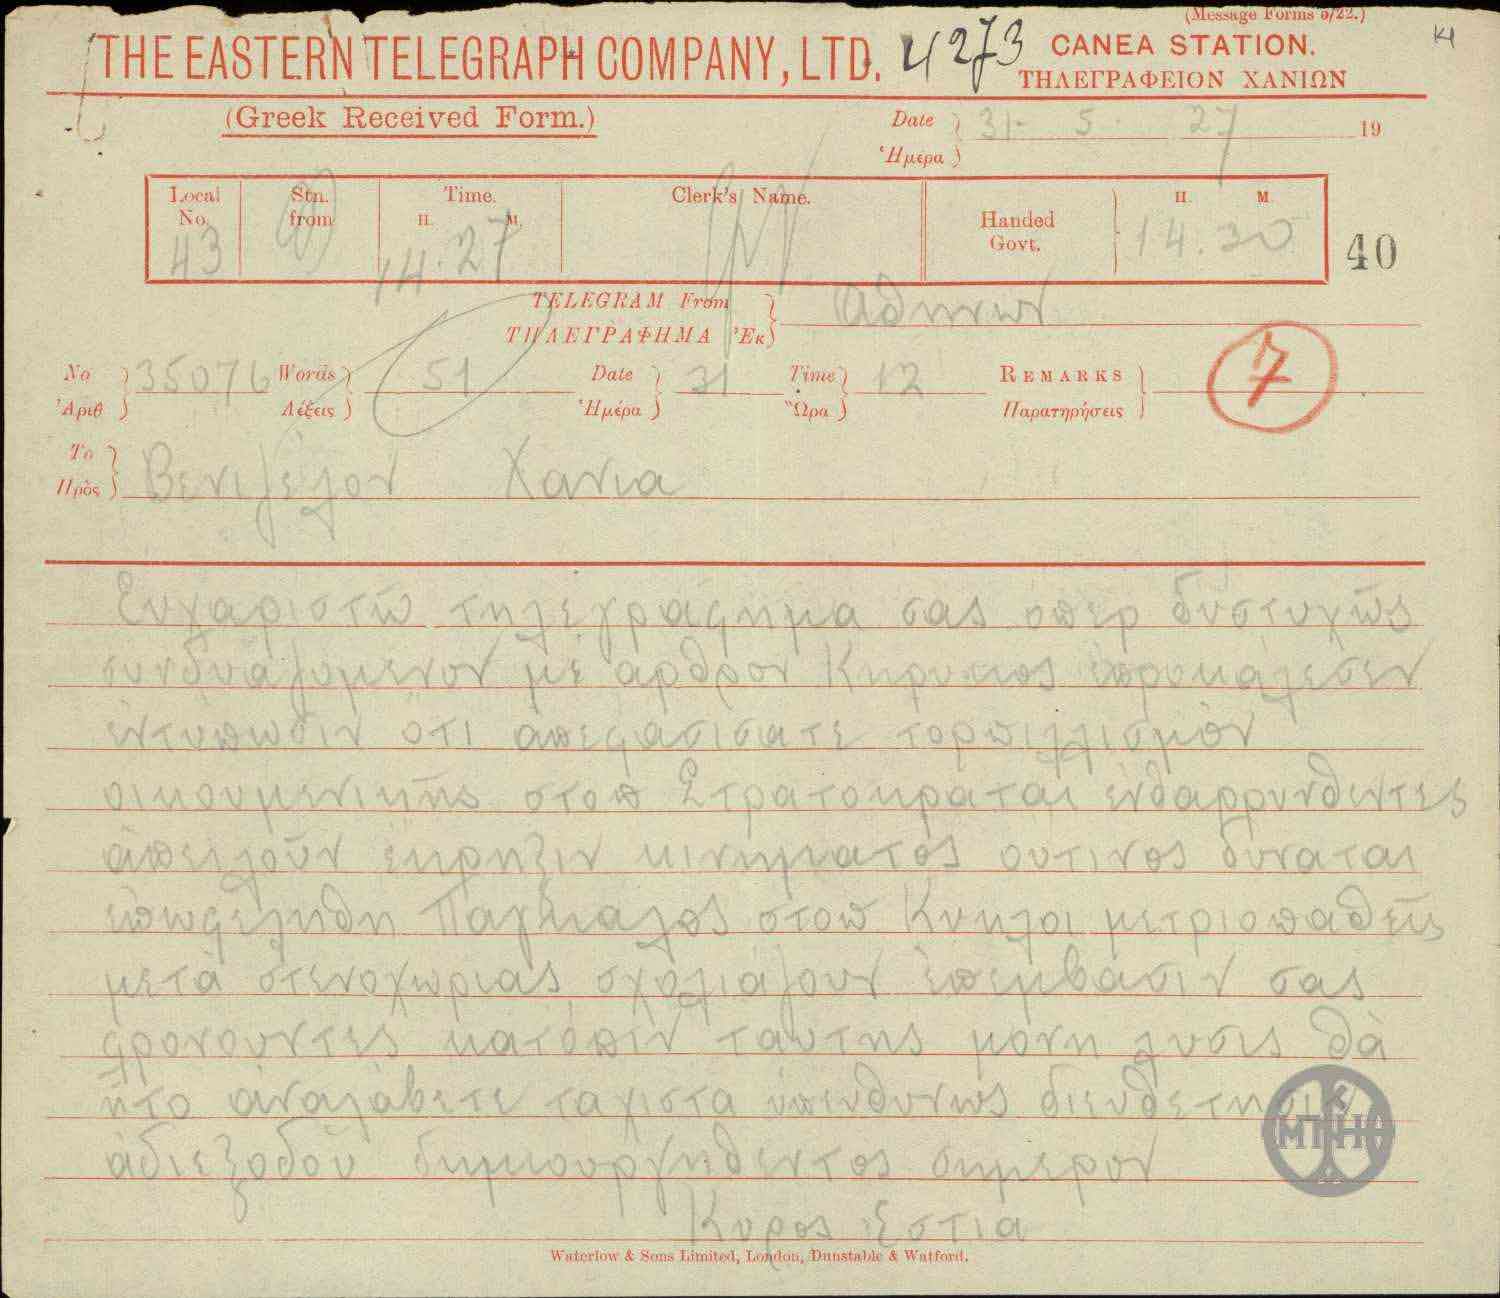 (Message Forms 5/22.)
THE EASTERN TELEGRAPH COMPANY, LTD. 4273 CANEA STATION.
ΤΗΛΕΓΡΑΦΕΙΟΝ ΧΑΝΙΩΝ
(Greek Received Form.)
Date 31- 5. 27 19
Ἡμέρα
Local No. Stn. from Time. H. M. Clerk's Name. Handed Govt. H. M.
43 14.27 14.30 40
TELEGRAM From Αθηνων
ΤΗΛΕΓΡΑΦΗΜΑ Ἐκ
No 35076 Words 51 Date 31 Time 12 REMARKS 7
Ἀριθ Λέξεις Ἡμέρα Ὥρα Παρατηρήσεις
To Βενιζελον Χανια
Πρὸς
Ευχαριστῶ τηλεγράφημα σας οπερ δυστυχῶς
συνδυαζομενον με αρθρον Κηρυκος επροκάλεσεν
εντυπωσιν οτι απεφασισατε τορπιλλισμὸν
οικουμενικῆς στοπ Στρατοκραται ενθαρρυνθεντες
ἀπειλοῦν εκρηξιν κινηματος ουτινος δυναται
επωφεληθη Παγκαλος στοπ Κυκλοι μετριοπαθεῖς
μετὰ στενοχωριας σχολιαζουν επεμβασιν σας
φρονουντες κατοπιν ταυτης μονη λυσις θὰ
ητο ἀναλάβετε ταχιστα υπευθυνως διευθετησιν
ἀδιεξοδου δημιουργηθεντος σημερον
Κυρος Εστια
ΜΠΗ
Waterlow & Sons Limited, London, Dunstable & Watford.